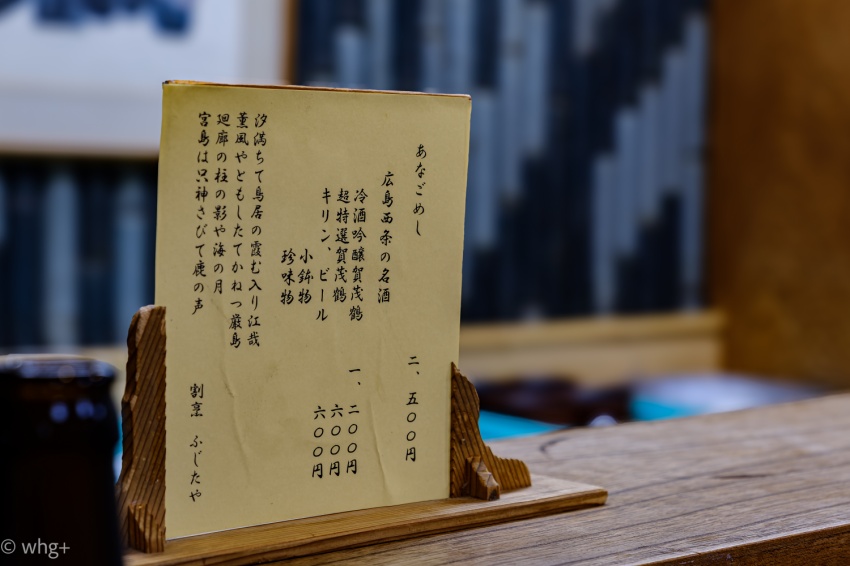 あなごめし 二、五〇〇円
広島西条の名酒
冷酒吟醸賀茂鶴 一、二〇〇円
超特選賀茂鶴 六〇〇円
キリン、ビール 六〇〇円
小鉢物
珍味物
汐満ちて鳥居の霞む入り江哉
薫風やともしたてかねつ厳島
廻廊の柱の影や海の月
宮島は只神さびて鹿の声
割烹 ふじたや
© whg+